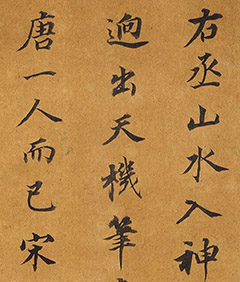 右丞山水入神
迥出天機筆
唐一人而已宋